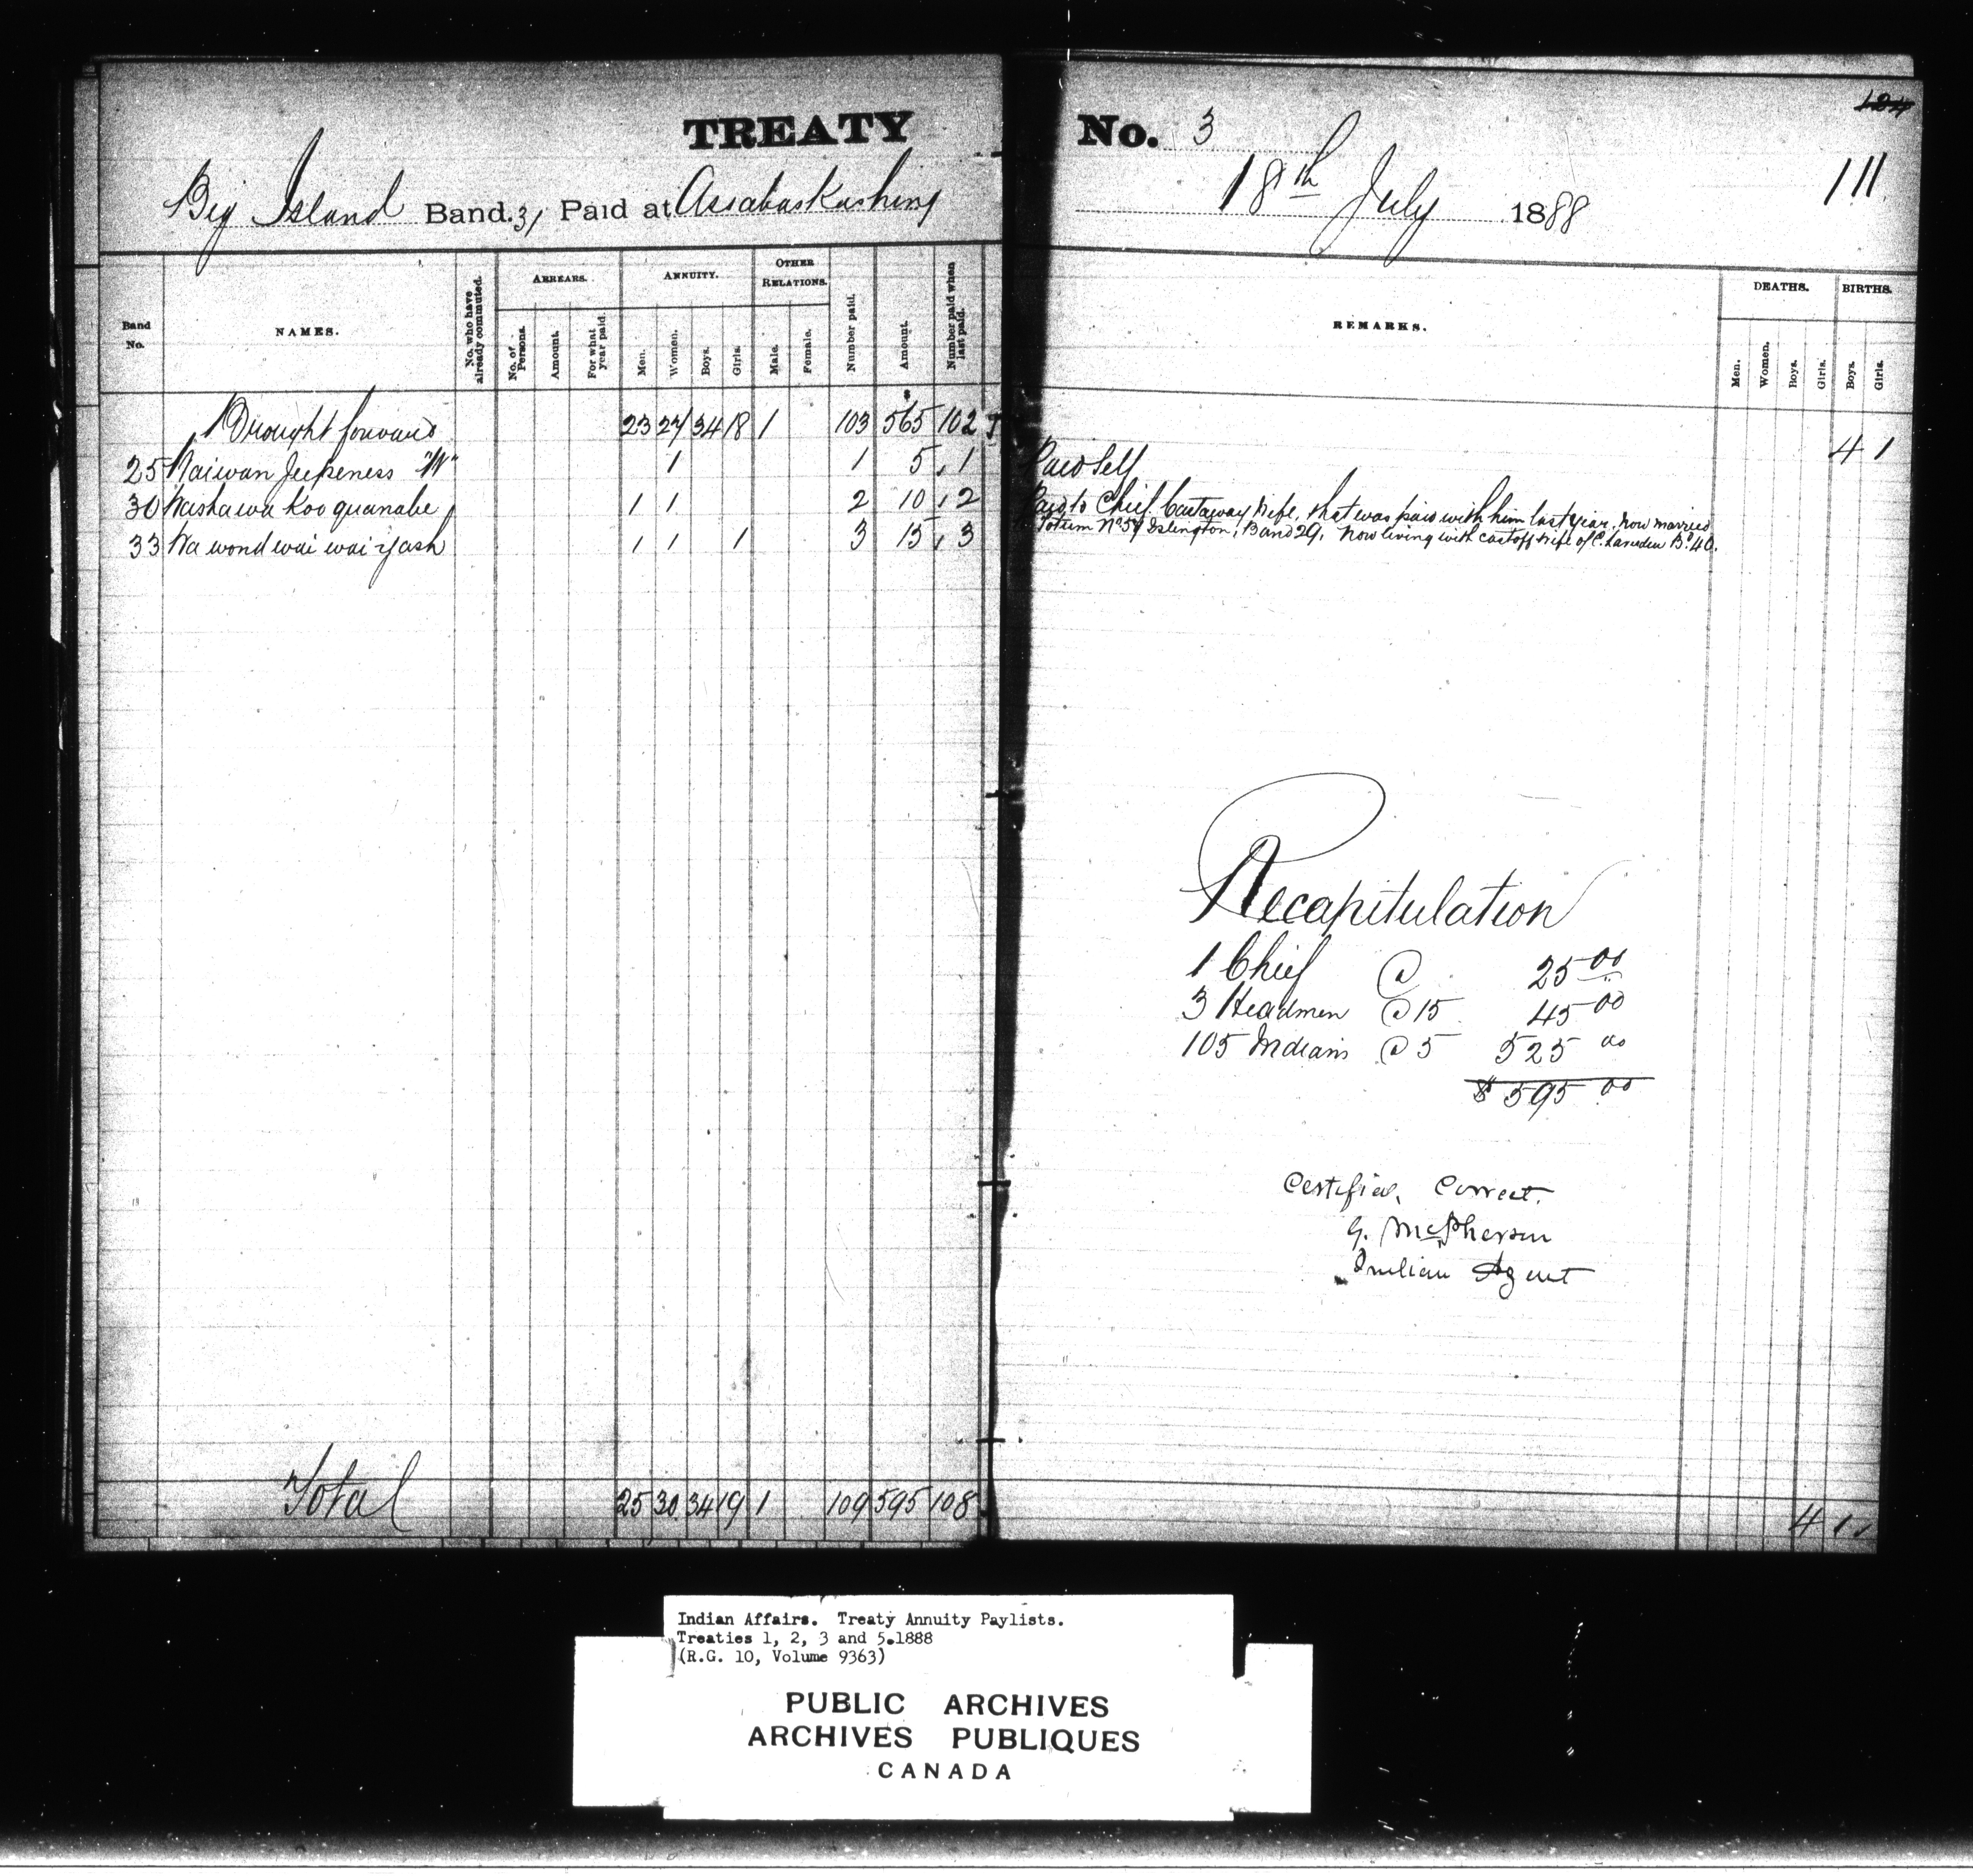 TREATY No. 3
124
111
Big Island Band. 31 Paid at Assabaskashing 18th July 1888
Band No. NAMES. No. who have already commuted. ARREARS. No. of Persons. Amount. For what year paid. ANNUITY. Men. Women. Boys. Girls. OTHER RELATIONS. Male. Female. Number paid. Amount. Number paid when last paid. REMARKS. DEATHS. Men. Women. Boys. Girls. BIRTHS. Boys. Girls.
Brought forward 23 27 34 18 1 103 565 102 4 1
25 "W" 1 1 5 1 Paid Self
30 1 1 2 10 2 Paid to Chief. Castaway Wife, that was paid with him last year, now married
Totum No 57 Islington, Band 29. Now living with castoff wife of C. B. 40.
33 Na wond wai wai yash 1 1 1 3 15 3
Recapitulation
1 Chief @ 25 00
3 Headmen @ 15 45 00
105 Indians @ 5 525 00
$ 595 00
Certified Correct.
G. McPherson
Indian Agent
Total 25 30 34 19 1 109 595 108 4 1
Indian Affairs. Treaty Annuity Paylists.
Treaties 1, 2, 3 and 5.1888
(R.G. 10, Volume 9363)
PUBLIC ARCHIVES
ARCHIVES PUBLIQUES
CANADA